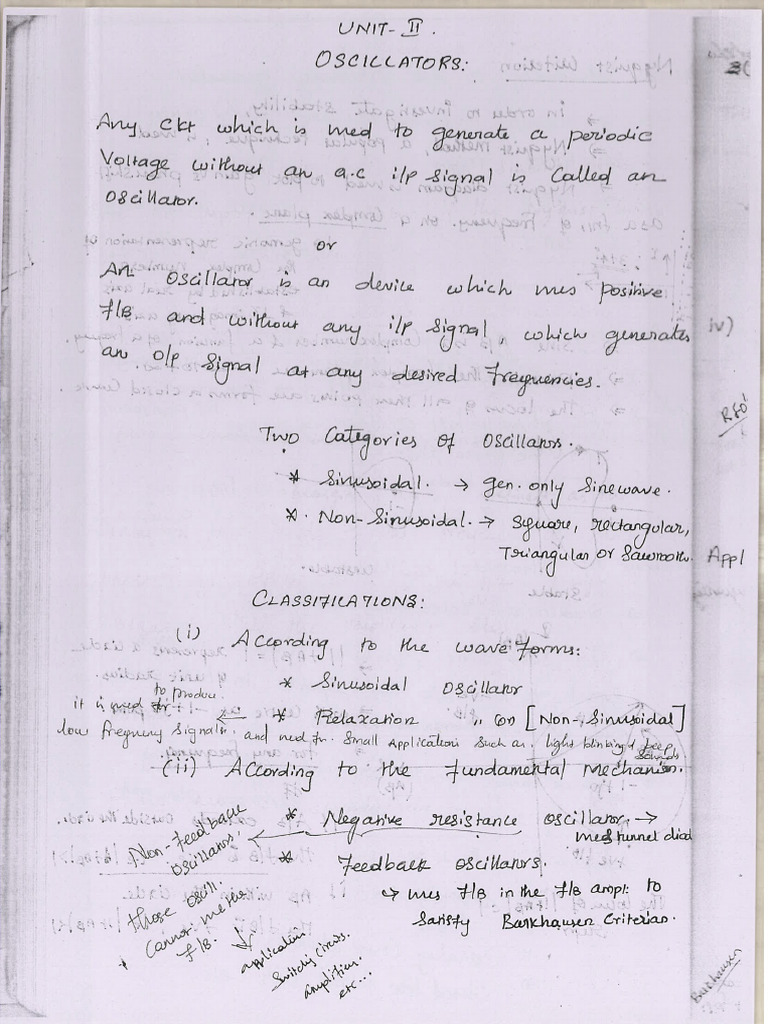 UNIT-II.
OSCILLATORS:
Any CKt which is used to generate a periodic
Voltage without an a.c i/p signal is Called an
Oscillator.
or
An Oscillator is an device which uses positive
F/B and without any i/p Signal which generates
an O/p Signal at any desired Frequencies.
Two Categories of Oscillators.
* Sinusoidal. → gen. only Sinewave.
* Non-Sinusoidal. → Square, rectangular,
Triangular or Sawtooth.
CLASSIFICATIONS:
(i) According to the wave forms:
* Sinusoidal Oscillator
* Relaxation " (or) [Non-Sinusoidal]
to produce
it is used for
low frequency signals. and used for Small Application such as light blinking, beep sounds
(ii) According to the Fundamental Mechanism.
* Negative resistance oscillator →
uses tunnel diod
* Feedback oscillators.
→ uses F/B in the F/B ampl: to
Satisfy Barkhausen Criterian.
Non-Feedback
Oscillators.
those oscill.
Cannot
F/B.
application
Switching Circuits.
amplition.
etc...
iv)
Appl
Barkhausen